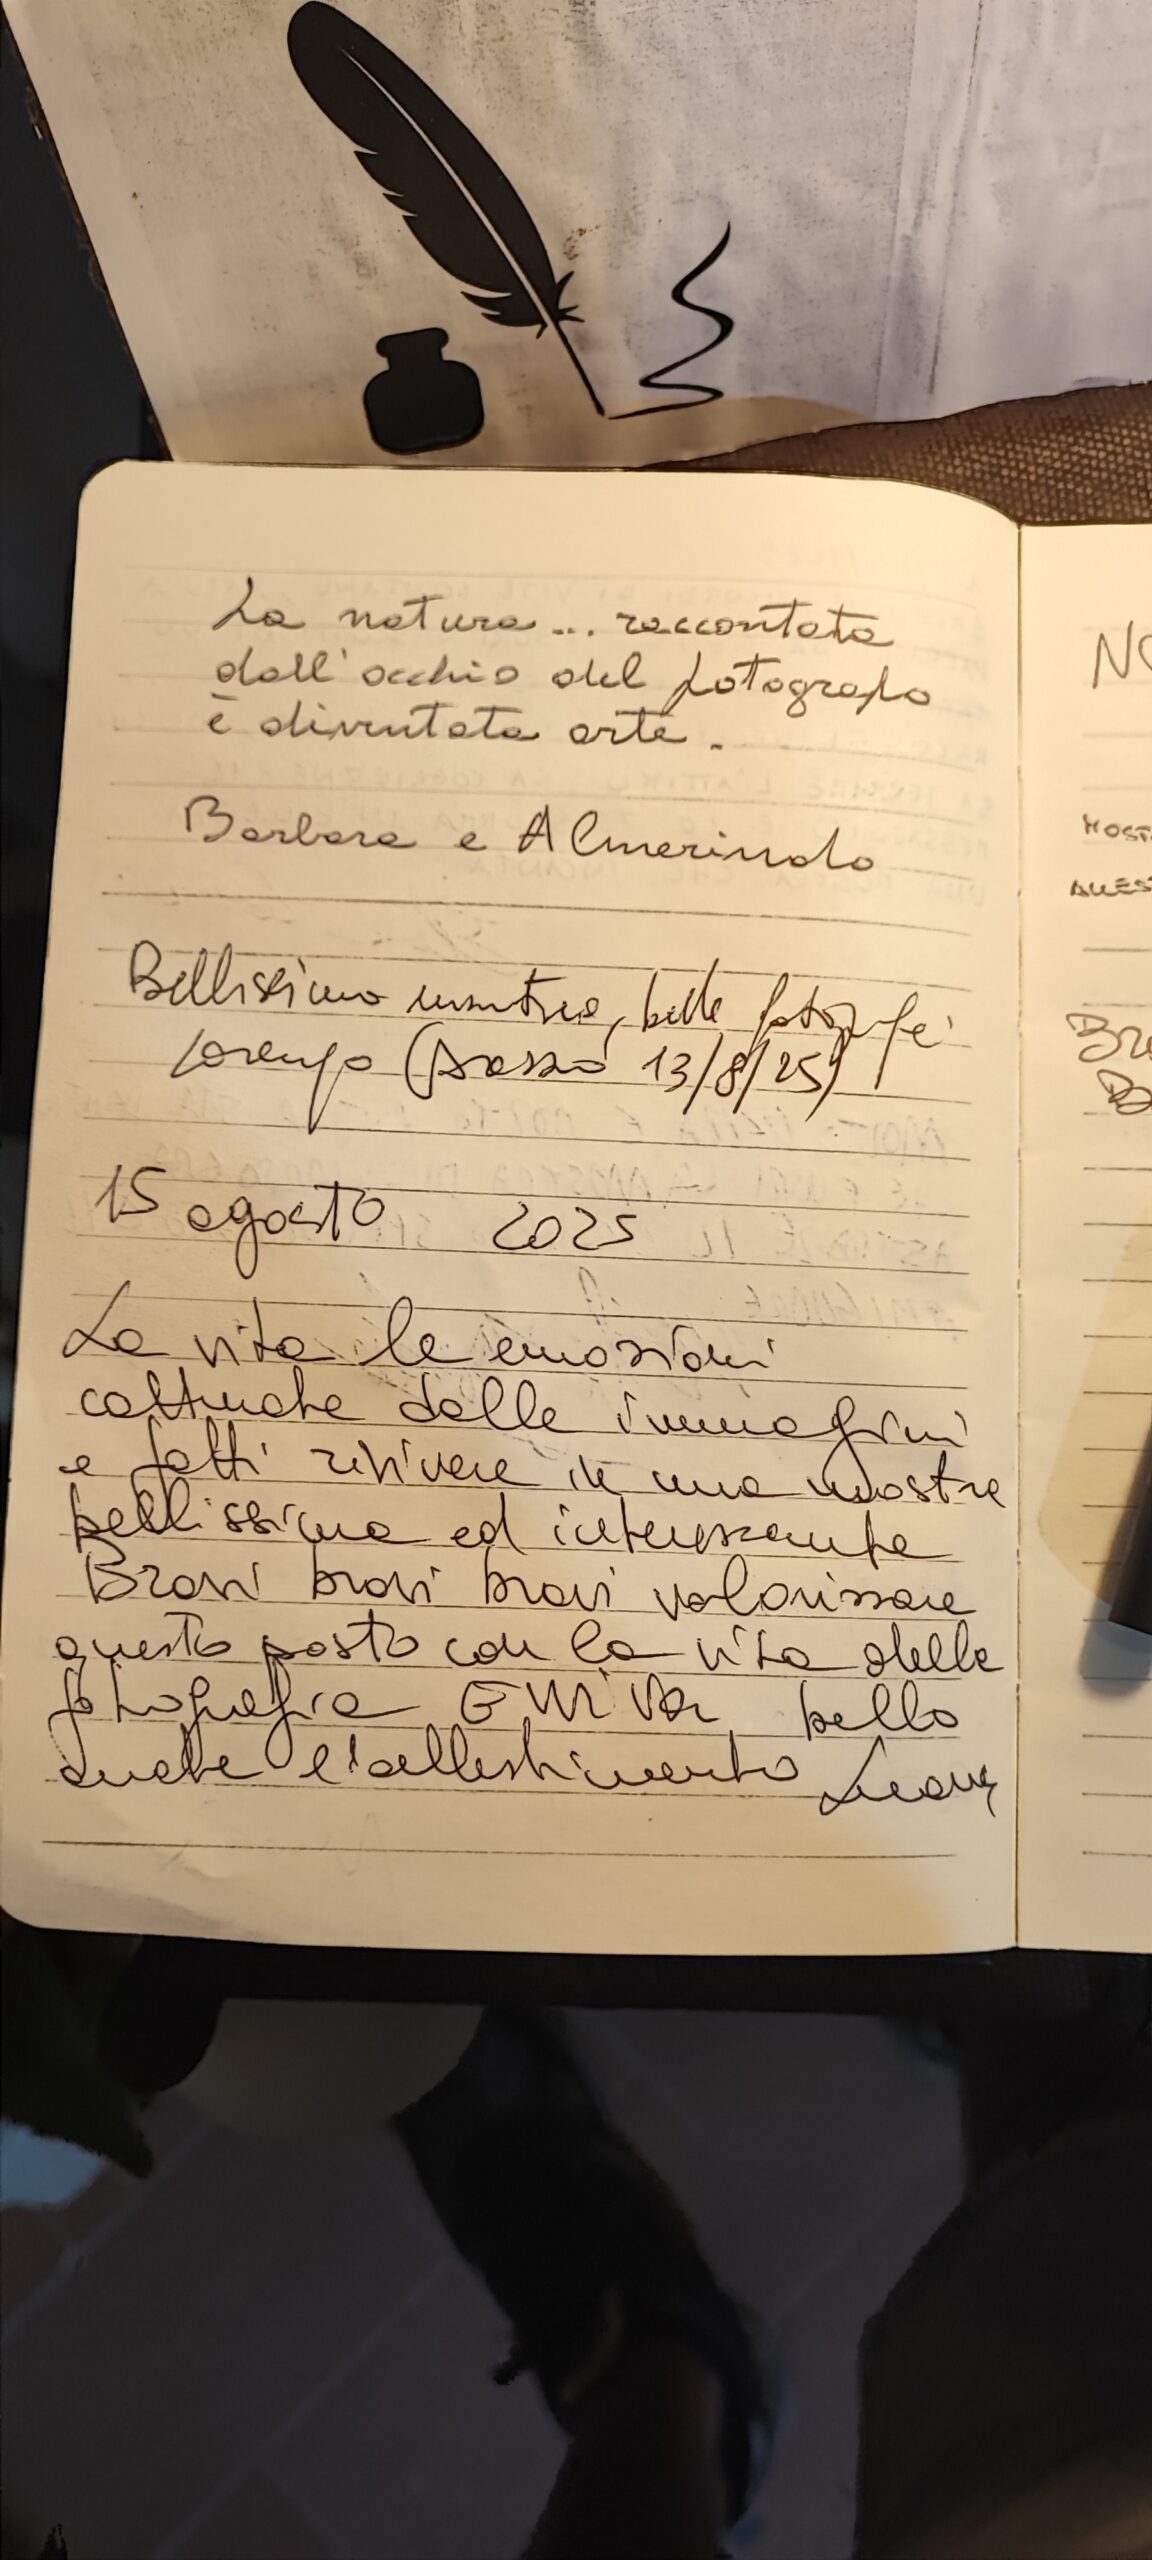 La natura... raccontata
dall'occhio del fotografo
è diventata arte.
Barbara e Almerindo
Bellissima mostra, belle fotografie
Lorenzo (Arezzo 13/8/25)
15 agosto 2025
La vita le emozioni
catturate dalle immagini
e fatti rivivere in una mostra
bellissima ed interessante
Bravi bravi bravi valorizzare
questo posto con la vita della
fotografia EVVIVA bello
anche l'allestimento